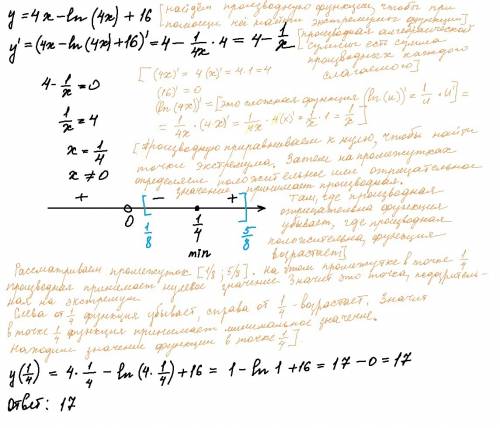 y = 4x - ln(4x) + 16 [найдём производную функции, чтобы при
помощи неё найти экстремумы функции]
y' = (4x - ln(4x) + 16)' = 4 - 1/4x · 4 = 4 - 1/x [производная алгебраической
суммы есть сумма
производных каждого
слагаемого]
4 - 1/x = 0
[(4x)' = 4(x)' = 4·1 = 4
(16)' = 0
(ln(4x))' = [это сложная функция (ln(u))' = 1/u · u'] =
= 1/4x · (4x)' = 1/4x · 4(x)' = 1/x · 1 = 1/x]
1/x = 4
x = 1/4
x ≠ 0
[производную приравниваем к нулю, чтобы найти
точки экстремума. Затем на промежутках
определяем положительное или отрицательное
значение принимает производная.
Там, где производная
отрицательна функция
убывает, где производная
положительна, функция
возрастает]
+ - +
0 1/8 1/4 5/8
min
Рассматриваем промежуток [1/8; 5/8]. На этом промежутке в точке 1/4
производная принимает нулевое значение. Значит это точка, подозритель-
ная на экстремум.
Слева от 1/4 функция убывает, справа от 1/4 - возрастает. Значит
в точке 1/4 функция принимает минимальное значение.
Находим значение функции в точке 1/4]
y(1/4) = 4 · 1/4 - ln(4 · 1/4) + 16 = 1 - ln 1 + 16 = 17 - 0 = 17
Ответ: 17